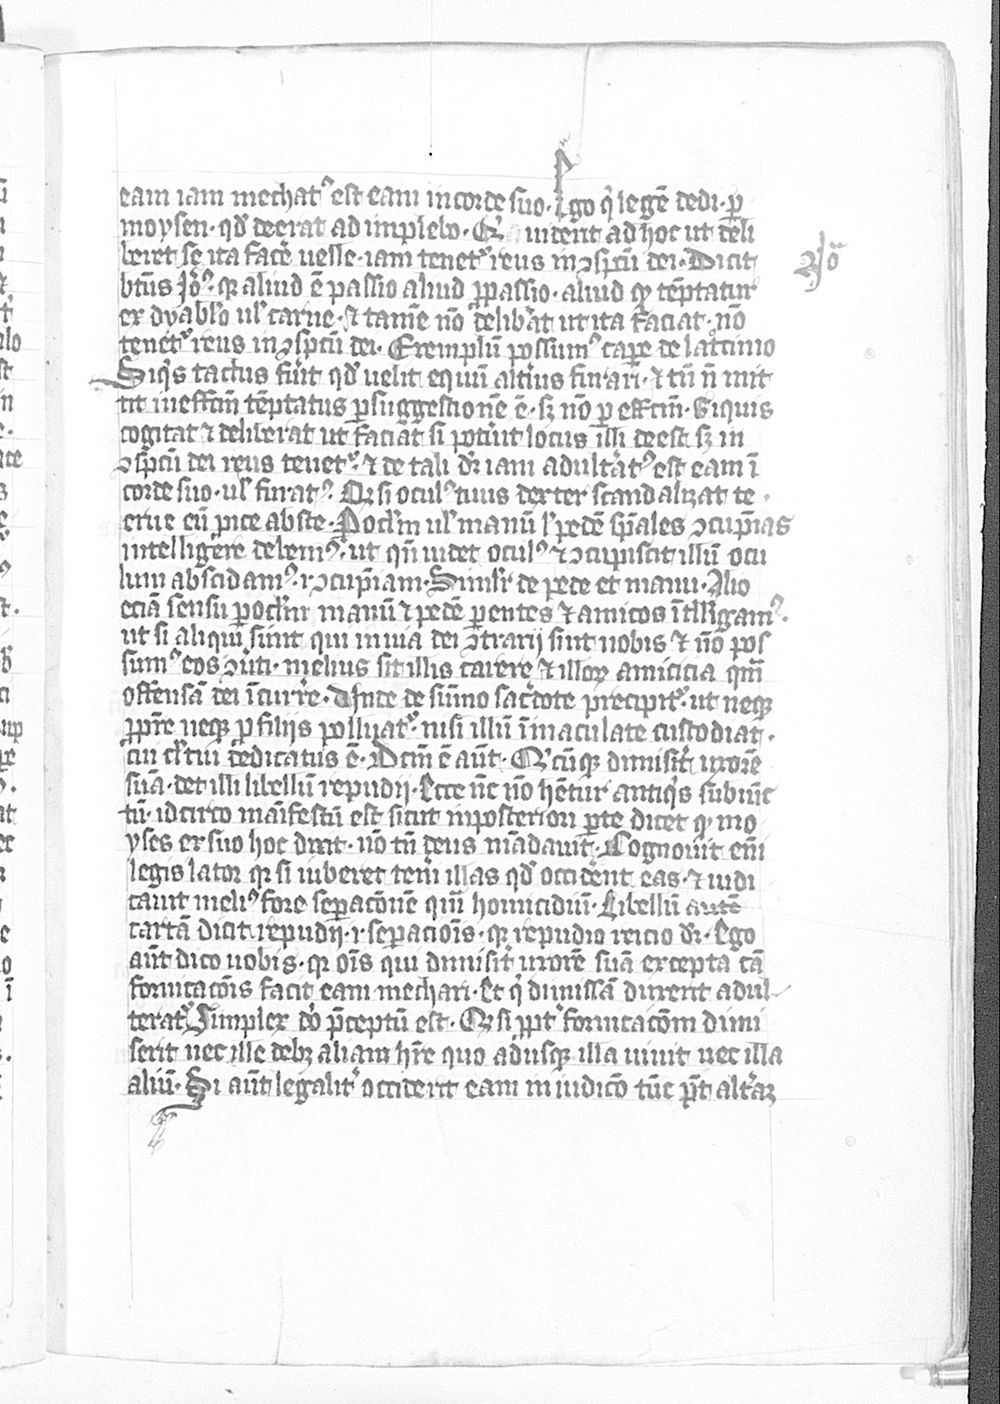 eam iam mechatꝰ est eam in corde suo. Ego qͥ legē dedi. ꝑ
moysen. qd̓ deerat ad implebo. Qͥ uiderit ad hoc ut deli
beret se ita face̓ uelle. iam tenetᷣ reus in ɔspc̄tu dei. Dicit
bt̄us Jo̓ꝰ. qꝛ aliud ē passio aliud ꝓpassio. aliud qꝫ tēptatur
ex dyabl̓o ul̓ carne. ⁊ tamē nō delib̓at ut ita faciat. nō
tenetᷣ reus in ɔspc̄tu dei. Exemplū possumꝰ cape̓ de latt̓cinio
Siqͥs tactus fu̓it qd̓ uelit equū alt̓ius furari. ⁊ tn̄ n̄ mit
tit in effc̄m tēptatus ꝑ suggestionē ē. sꝫ nō ꝑ effc̄m. Siquis
cogitat ⁊ deliberat ut faciat si potu̓it locus illi deest sꝫ in
ɔspc̄tu dei reus tenetᷣ. ⁊ de tali dr̄ iam adult̓atꝰ est eam ī
corde suo. ul̓ furatꝰ. Qꝫ si oculꝰ tuus dexter scandalizat te.
erue eū ꝓice abs te. Ꝑ ocl̓m ul̓ manū l̓ pedē spūales ɔcupīas
intelligere debemꝰ. ut qn̄ uidet oculꝰ ⁊ ɔcupiscit illū ocu
lum abscidamꝰ. ⁊ ɔcupīam. Simil̓r de pede et manu. Alio
eciā sensu ꝑ ocl̓m manū ⁊ pedē ꝑentes ⁊ amicos ītlligamꝰ.
ut si aliqui sunt qui in uia dei ɔtrarij sint nobis ⁊ nō pos
sumꝰ eos ɔu̓ti. melius sit illis carere ⁊ illoꝝ amicicia qm̄
offensā dei īcurr̓e. Vnde de sūmo sac̓dote precipitᷣ. ut neqꝫ
ꝓpr̄e neqꝫ ꝓ filijs polluatᷣ. nisi illū īmaculate custodiat.
cui cl̓tui dedicatus ē. Dcm̄ ē aūt. Qͥcūqꝫ dimisit̓ uxorē
suā. det illi libellū repudij. Ecce nc̄ nō hētur antiqͥs subiūc
tū. idcirco māifestū est sicut in posteriori ꝑte dicet qꝫ mo
yses ex suo hoc dixit. nō tn̄ deus mādauit. Cognouit em̄
legislator qꝛ si iuberet teneri illas qd̓ occiderent eas. ⁊ iudi
cauit meliꝰ fore sepacōnē qm̄ homicidiū. Libellū autē
cartā dicit. repudij. ⁊ sepacionis. qꝛ repudio reicio dr̄. Ego
aūt dico uobis. qꝛ oīs qui dimisit̓ uxorē suā excepta cā
fornicacōis facit eam mechari. Et qͥ dimissā duxerit adul
teratᷣ. Simplex do̓ p̄ceptū est. Qꝫ si ꝓpt̓ fornicacōm dimi
serit nec ille debꝫ aliam hr̄e quo adusqꝫ illa uiuit nec illa
aliū. Si aūt legalit̓ occiderit eam in iudicō tūc pōt alt̓aꝫ
Jo̓